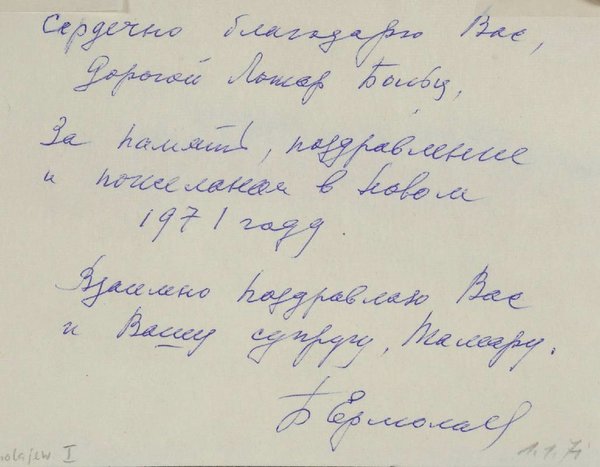 Сердечно благодарю Вас,
Дорогой Лотар Больц,
За память, поздравление
и пожелания в Новом
1971 году.
Взаимно поздравляю Вас
и Вашу супругу, Тамару.
Б Ермолаев
molajew I
1.1.71